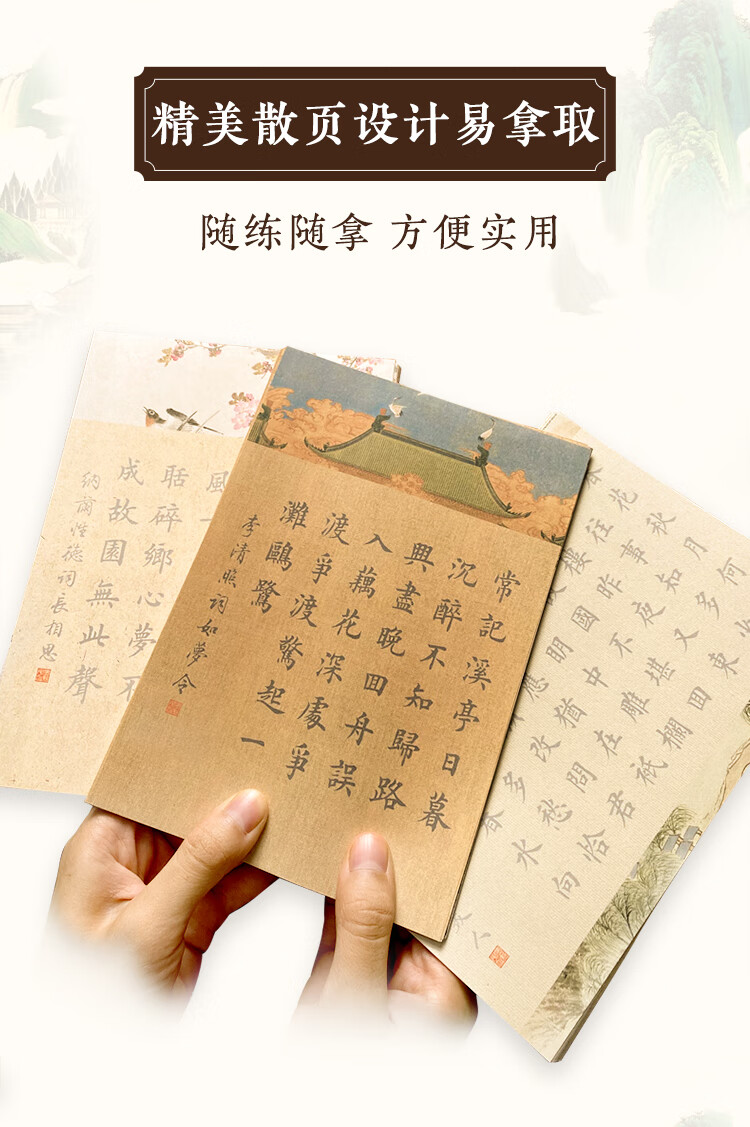 精美散页设计易拿取
随练随拿 方便实用
風
聒碎鄉心夢不
成故園無此聲
納蘭性德詞長相思
常記溪亭日暮
沉醉不知歸路
興盡晚回舟誤
入藕花深處爭
渡爭渡驚起一
灘鷗鷺
李清照詞如夢令
花秋月何
往事知多
樓昨夜又東
國不堪回
明中雕欄
應猶在祗
改問君
多愁恰
春水向